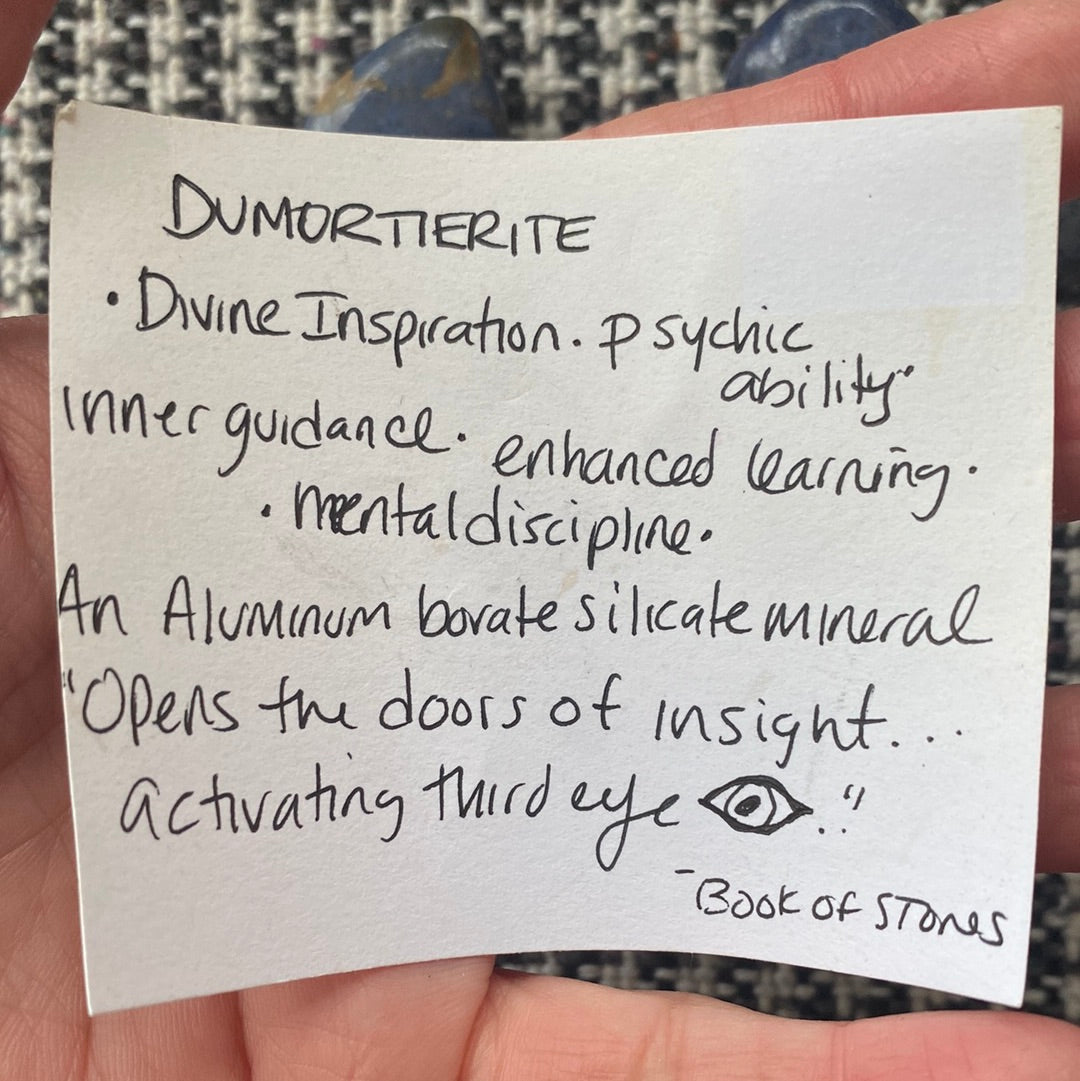 DUMORTIERITE
• Divine Inspiration. psychic
ability•
Inner guidance. enhanced learning.
• mental discipline.
An Aluminum borate silicate mineral
"Opens the doors of insight...
activating third eye 👁.."
- Book of Stones